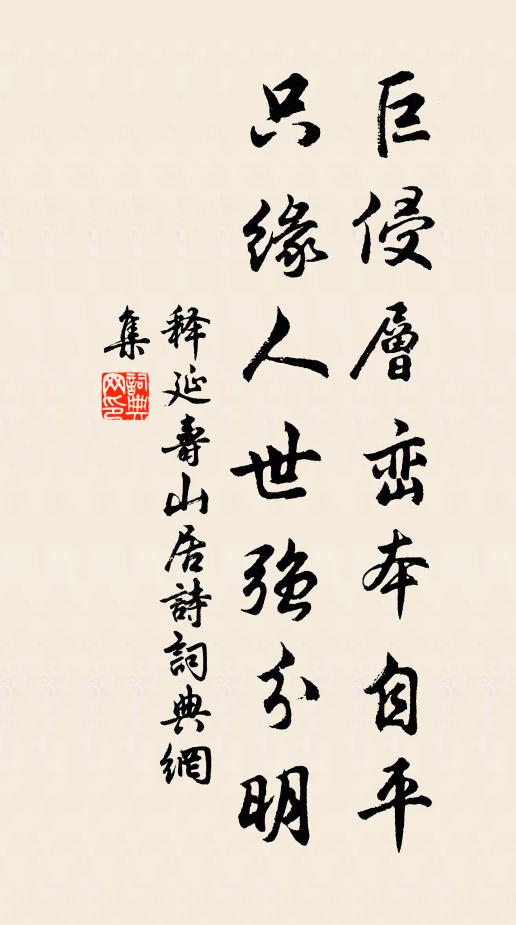 巨侵層峦本自平
只缘人世強分明
释延壽山居詩詞典網
集
詞典网印